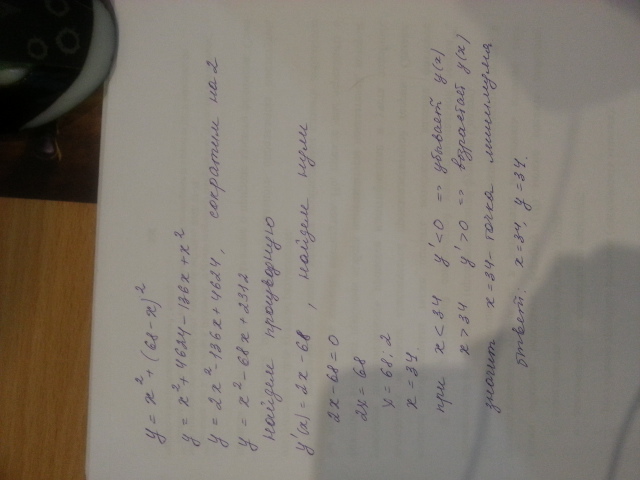 y = x² + (68-x)²
y = x² + 4624 - 136x + x²
y = 2x² - 136x + 4624, сократим на 2
y = x² - 68x + 2312
найдем производную
y'(x) = 2x - 68, найдем нули
2x - 68 = 0
2x = 68
x = 68 : 2
x = 34.
при x < 34 y' < 0 => убывает y(x)
x > 34 y' > 0 => возрастает y(x)
значит x = 34 - точка минимума
ответ: x = 34, y = 34.